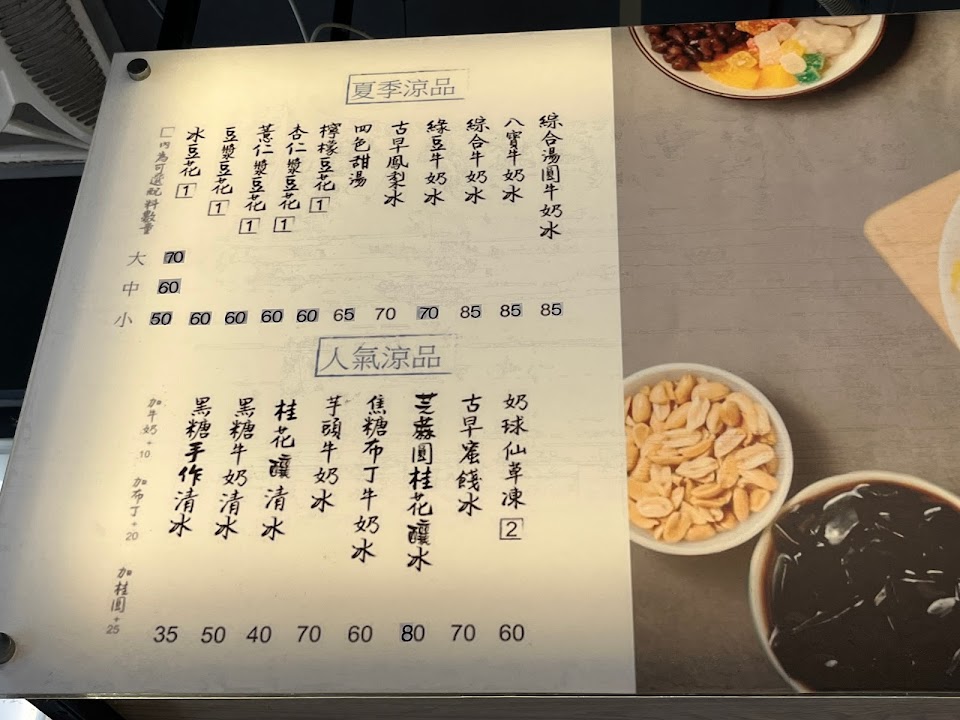 夏季涼品
綜合湯圓牛奶冰
八寶牛奶冰
綜合牛奶冰
綠豆牛奶冰
古早鳳梨冰
四色甜湯
檸檬豆花 1
杏仁漿豆花 1
薏仁漿豆花 1
豆漿豆花 1
冰豆花 1
□內為可選配料數量
大 70
中 60
小 50 60 60 60 60 65 70 70 85 85 85
人氣涼品
奶球仙草凍 2
古早蜜餞冰
芝麻圓桂花釀冰
焦糖布丁牛奶冰
芋頭牛奶冰
桂花釀清冰
黑糖牛奶清冰
黑糖手作清冰
加牛奶+10
加布丁+20
加桂圓+25
35 50 40 70 60 80 70 60